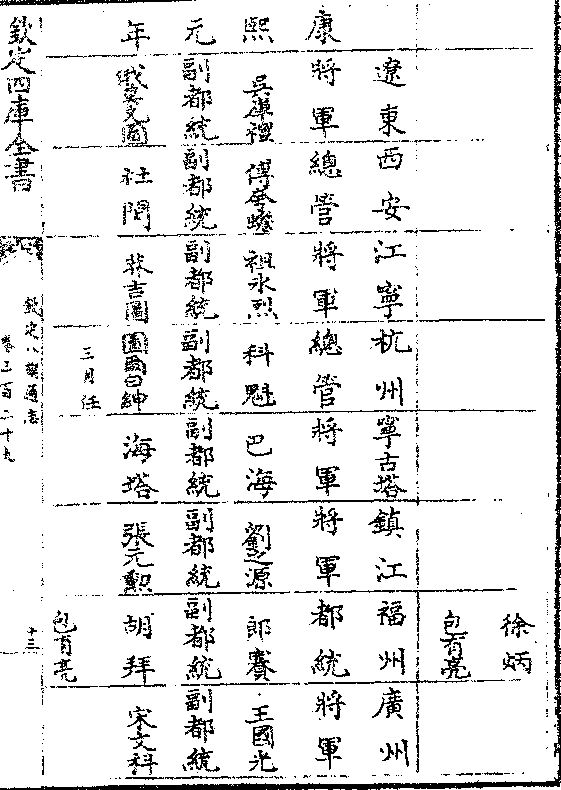 徐炳
包有亮
康熙元年
遼東 西安 江寧 杭州 寧古塔 鎮江 福州 廣州
將軍 總管 將軍 總管 將軍 將軍 都統 將軍
吳庫禮 祖永烈 科魁 巴海 劉之源 郎賽 王國光
副都統 副都統 副都統 副都統 副都統 副都統 副都統 副都統
俄莫克圖 社問 圖爾白紳 海塔 張元勲 胡拜 宋文科
三月任 包有亮
欽定四庫全書
欽定八旗通志
卷三百二十九
十三